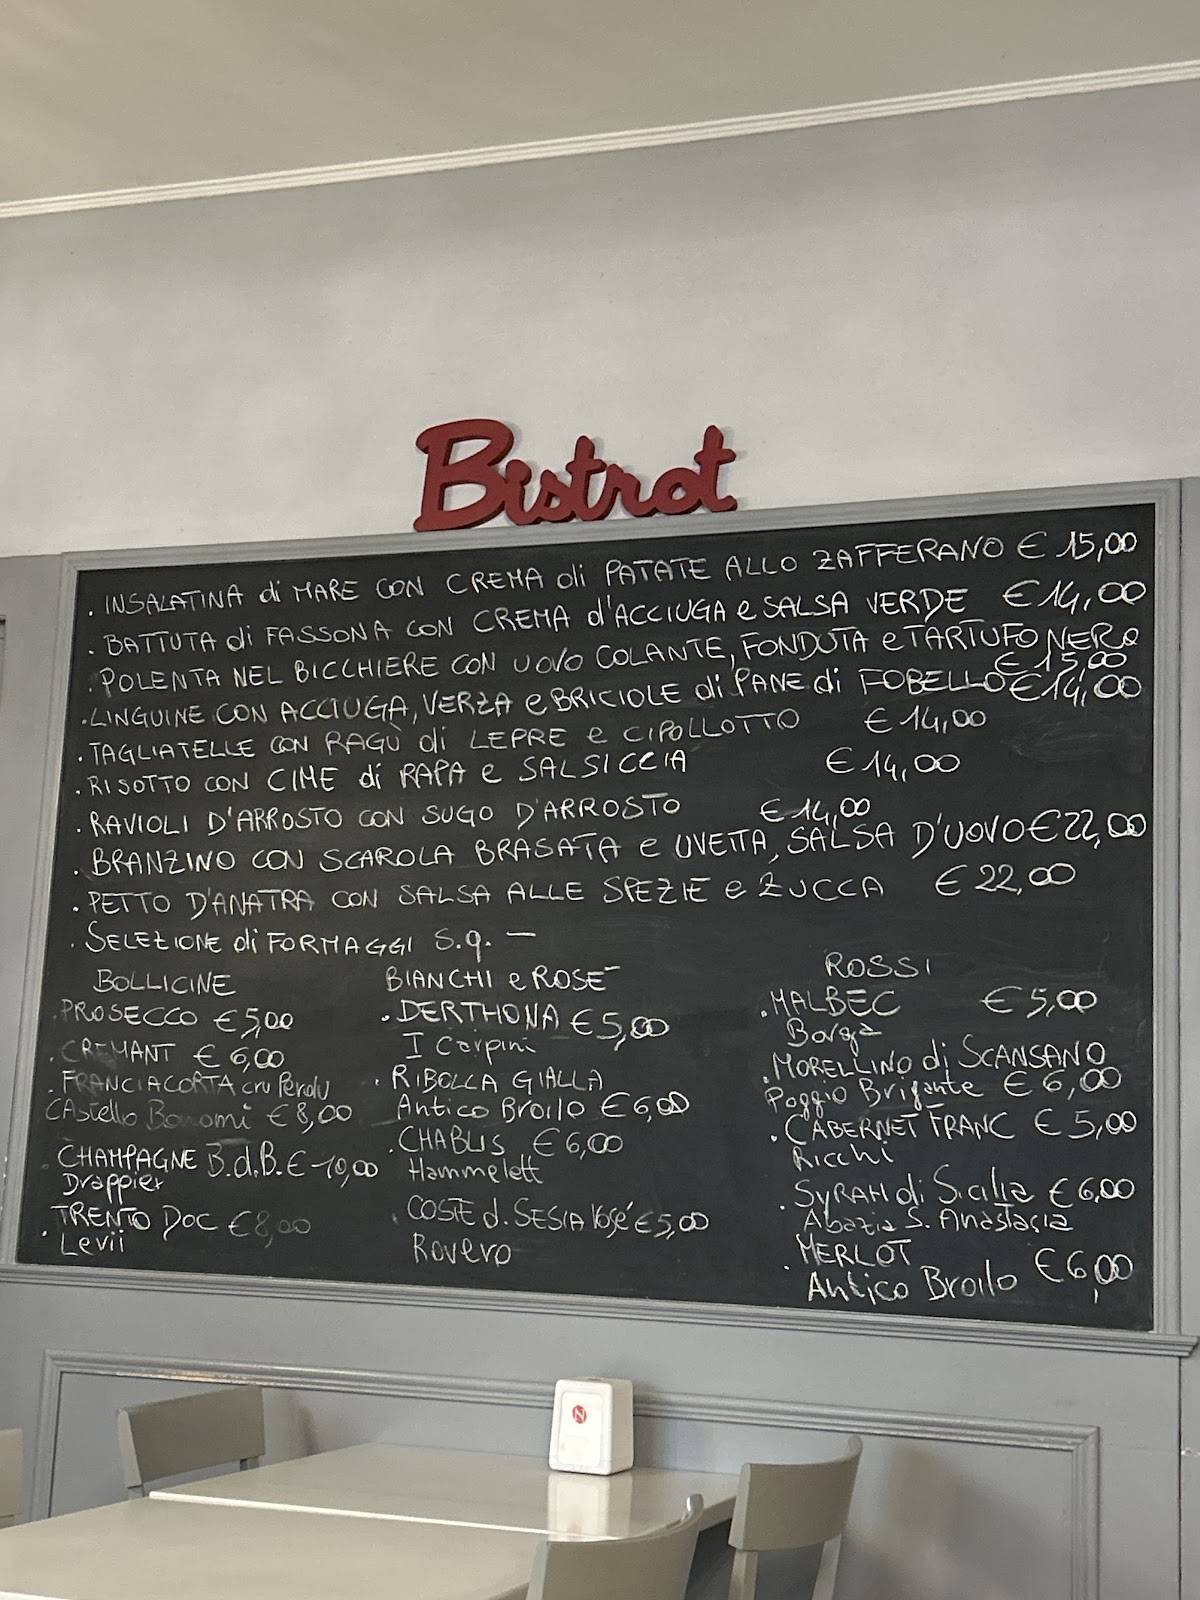 Bistrot
. INSALATINA di MARE CON CREMA di PATATE ALLO ZAFFERANO € 15,00
. BATTUTA di FASSONA CON CREMA d'ACCIUGA e SALSA VERDE € 14,00
. POLENTA NEL BICCHIERE CON UOVO COLANTE, FONDUTA e TARTUFO NERO
€ 15,00
. LINGUINE CON ACCIUGA, VERZA e BRICIOLE di PANE di FOBELLO € 14,00
. TAGLIATELLE CON RAGÙ di LEPRE e CIPOLLOTTO € 14,00
. RISOTTO CON CIME di RAPA e SALSICCIA € 14,00
. RAVIOLI D'ARROSTO CON SUGO D'ARROSTO € 14,00
. BRANZINO CON SCAROLA BRASATA e UVETTA, SALSA D'UOVO € 22,00
. PETTO D'ANATRA CON SALSA ALLE SPEZIE e ZUCCA € 22,00
. SELEZIONE di FORMAGGI S.q. —
BOLLICINE
. PROSECCO € 5,00
. CREMANT € 6,00
. FRANCIACORTA cru Perdu
CAstello Bonomi € 8,00
. CHAMPAGNE B.d.B. € 10,00
Drappier
. TRENTO DOC € 8,00
Levii
BIANCHI e ROSE
. DERTHONA € 5,00
I Carpini
. RIBOLLA GIALLA
Antico Broilo € 6,00
. CHABLIS € 6,00
Hammelett
. COSTE d. SESIA rosé € 5,00
Rovero
ROSSI
. MALBEC € 5,00
Borga
. MORELLINO di SCANSANO
Poggio Brigante € 6,00
. CABERNET FRANC € 5,00
Ricchi
. SYRAH di Sicilia € 6,00
Abazia S. Anastacia
. MERLOT € 6,00
Antico Broilo
N